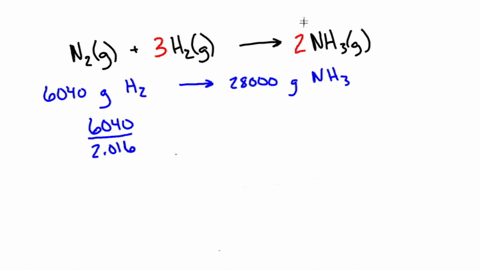 N₂(g) + 3H₂(g) ⟶ 2NH₃(g)
6040 g H₂ ⟶ 28000 g NH₃
6040
2.016